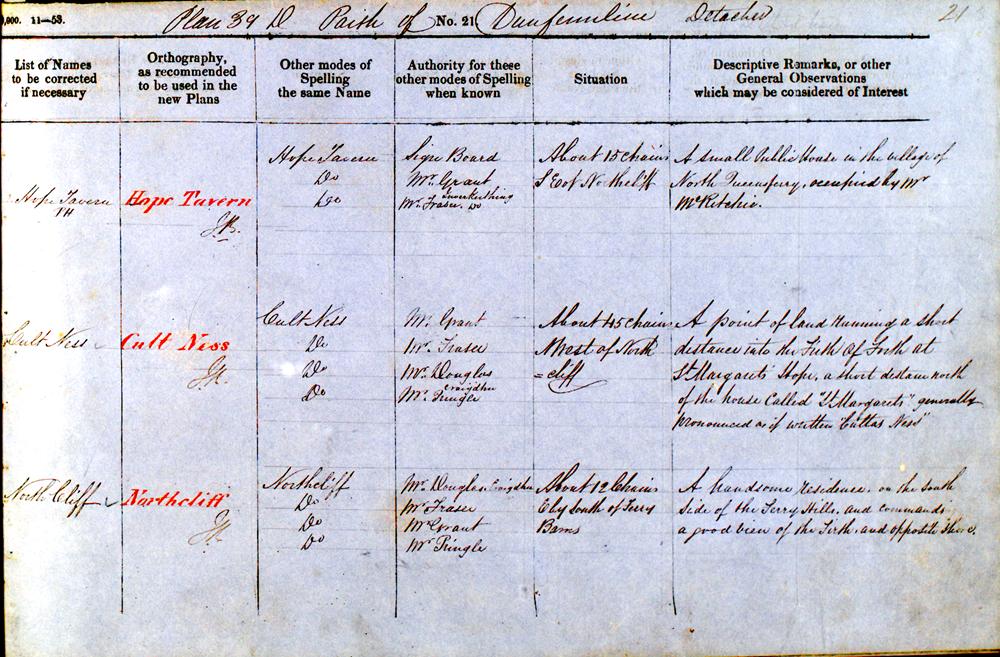 0,000. 11—53.
Plan 39 D Parish of No. 21 Dunfermline Detached
21
List of Names to be corrected if necessary
Orthography, as recommended to be used in the new Plans
Other modes of Spelling the same Name
Authority for these other modes of Spelling when known
Situation
Descriptive Remarks, or other General Observations which may be considered of Interest
Hope Tavern
PH
Hope Tavern
Hope Tavern
Do
Do
Sign Board
Mr. Grant
Mr. Fraser Inverkeithing Do
About 15 chains
S E of Northcliff
A small Public House in the village of
North Queensferry, occupied by Mr
McRitchie.
Cult Ness
Cult Ness
Cult Ness
Do
Do
Do
Mr. Grant
Mr. Fraser
Mr. Douglas
Craigdhu
Mr. Pringle
About 45 chains
N West of North
=cliff
A point of land running a short
distance into the Firth Of Forth at
St Margarets' Hope, a short distance north
of the house Called "St Margarets" generally
pronounced as if written "Cultas Ness"
North Cliff
Northcliff
Northcliff
Do
Do
Do
Mr. Douglas Craigdhu
Mr Fraser
Mr Grant
Mr Pringle
About 12 Chains
E by South of Ferry
Barns
A handsome residence, on the South
side of the Ferry Hills, and commands
a good view of the Firth, and opposite Shore.